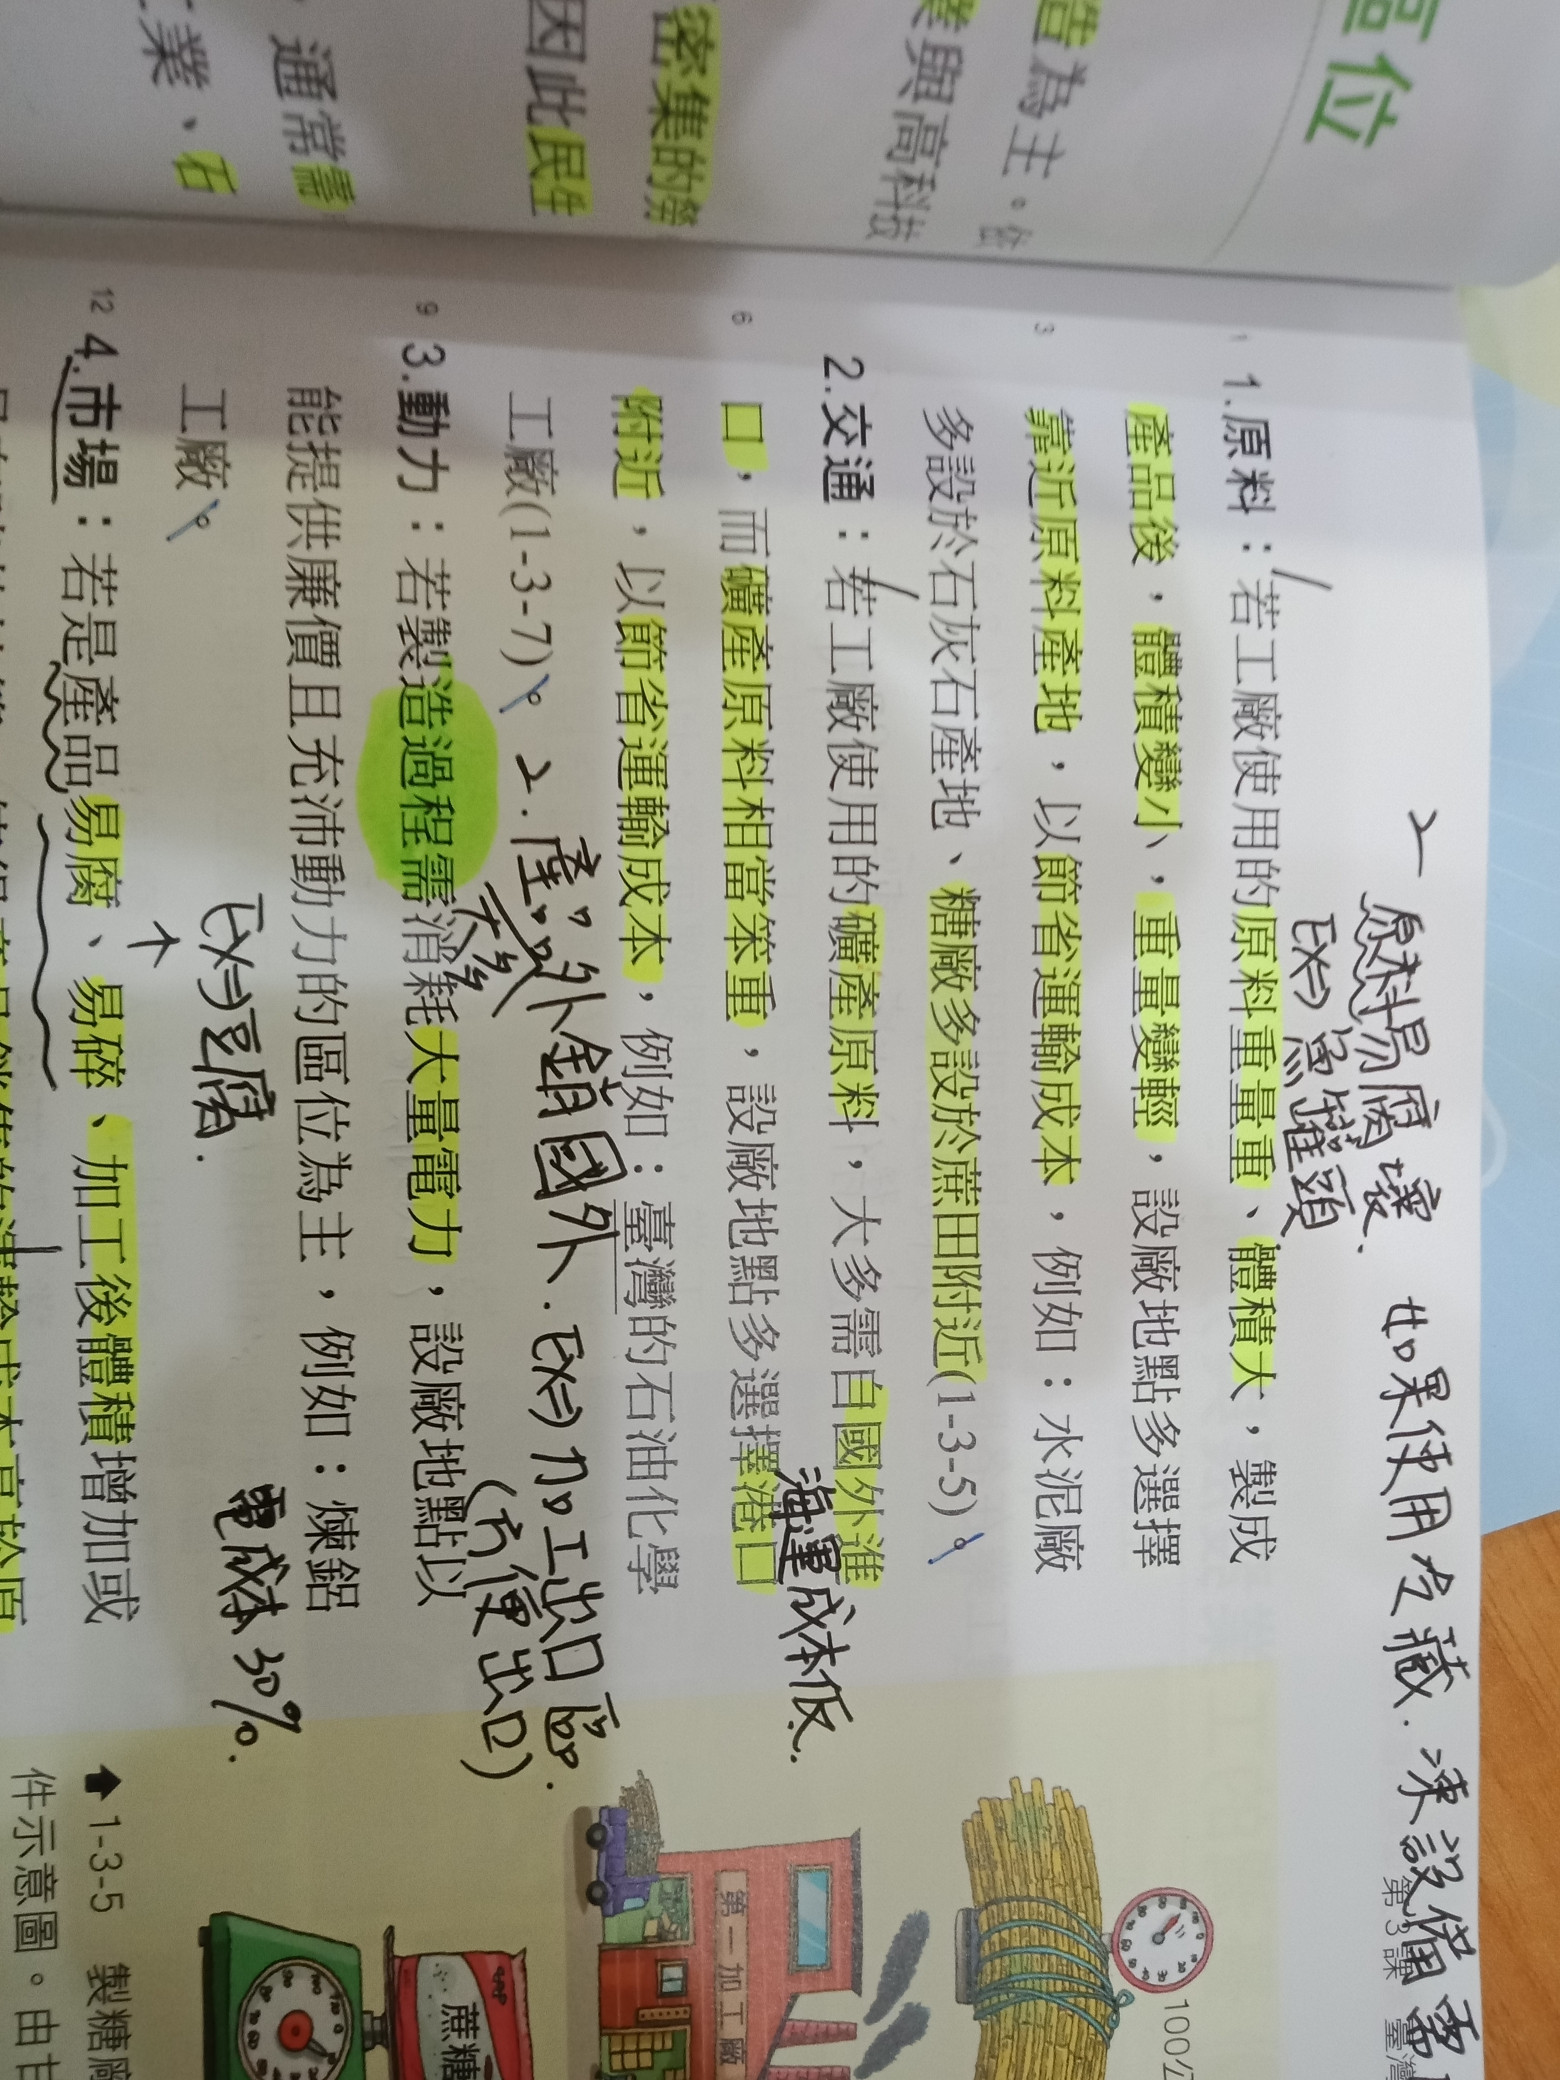 區位
造為主。依
業與高科技
密集的勞
因此民生
，通常需
工業、石
2 原料易腐壞. 如果使用冷藏.凍設備需
EX⇒魚罐頭
1.原料：若工廠使用的原料重量重、體積大，製成
產品後，體積變小，重量變輕，設廠地點多選擇
靠近原料產地，以節省運輸成本，例如：水泥廠
多設於石灰石產地、糖廠多設於蔗田附近(1-3-5)。
2.交通：若工廠使用的礦產原料，大多需自國外進
海運成本低.
口，而礦產原料相當笨重，設廠地點多選擇港口
附近，以節省運輸成本，例如：臺灣的石油化學
工廠(1-3-7)。
2.產品外銷國外.EX⇒加工出口區.
(方便出口)
3.動力：若製造過程需消耗大量電力，設廠地點以
能提供廉價且充沛動力的區位為主，例如：煉鋁
工廠。
EX⇒豆腐.
電成本30%.
4.市場：若是產品易腐、易碎、加工後體積增加或
1
3
6
9
12
第3課 臺灣
100公
第一加工廠
蔗糖
1-3-5 製糖廠
件示意圖。由甘